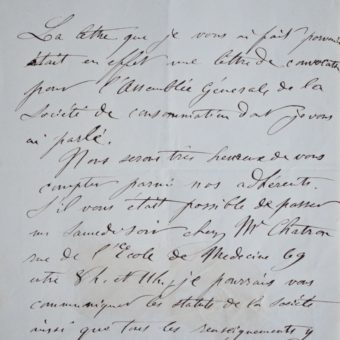 La lettre que je vous ai fait parvenir
était en effet une lettre de convocation
pour l'Assemblée Générale de la
Société de consommation dont je vous
ai parlé.
Nous serons très heureux de vous
compter parmi nos adhérents.
S'il vous était possible de passer
un samedi soir chez Mr Chatron
rue de l'Ecole de Médecine 69
entre 8h. et 11h., je pourrais vous
communiquer les statuts de la société
ainsi que tous les renseignements y